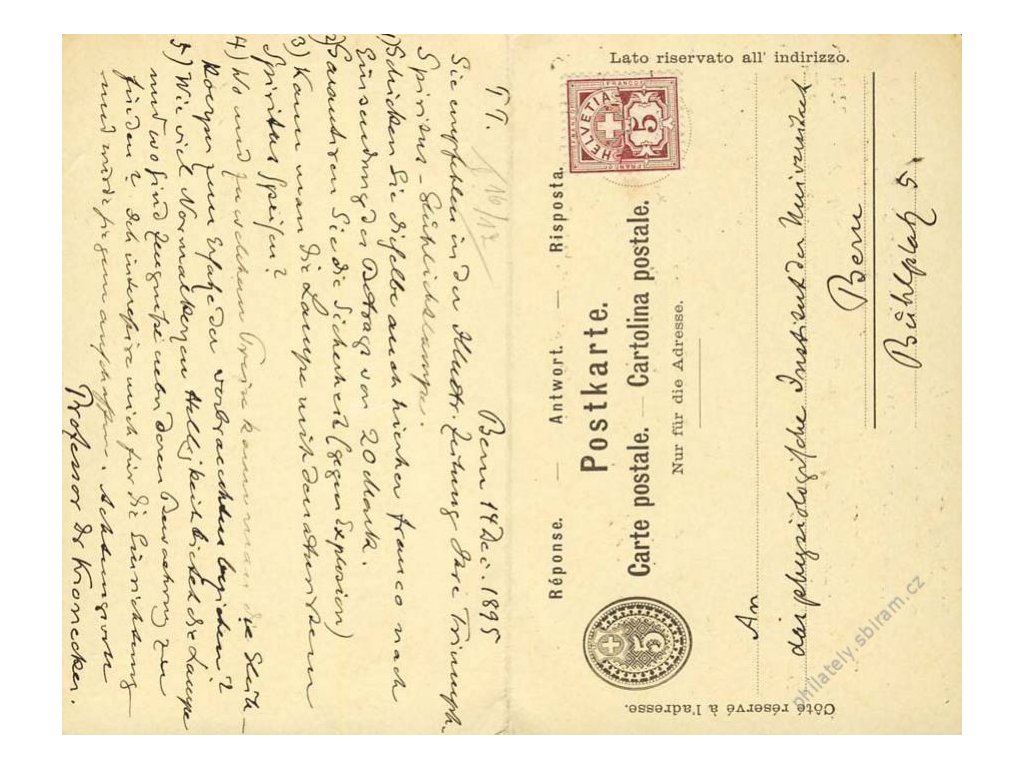 T. T.
16/12
Bern 14 Dec. 1895
Sie empfehlen in der Illustr. Zeitung Ihre Triumph-
Spiritus-Glühlichtlampe.
1) Schicken Sie dieselbe auch hierher franco nach
Einsendung des Betrags von 20 Mark.
2) Garantiren Sie die Sicherheit (gegen Explosion)
3) Kann man die Lampe mit denaturirtem
Spiritus speisen?
4) Wo und zu welchem Preise kann man die Glüh-
koerper zum Ersatze der verbrauchten beziehen?
5) Wie viel Normalkerzen Helligkeit bietet die Lampe
und wo sind Zeugnisse ueber deren Bewährung zu
finden? Ich interessire mich für die Einrichtung
und würde sie gern anschaffen. Achtungsvoll
Professor Dr Kronecker.
Lato riservato all' indirizzo.
HELVETIA
FRANCO
5
Réponse. — Antwort. — Risposta.
Postkarte.
Carte postale. — Cartolina postale.
Nur für die Adresse.
5
An
das physiologische Institut der Universitaet
Bern
Bühlplatz 5.
Côté réservé à l'adresse.
philately.sbiram.cz